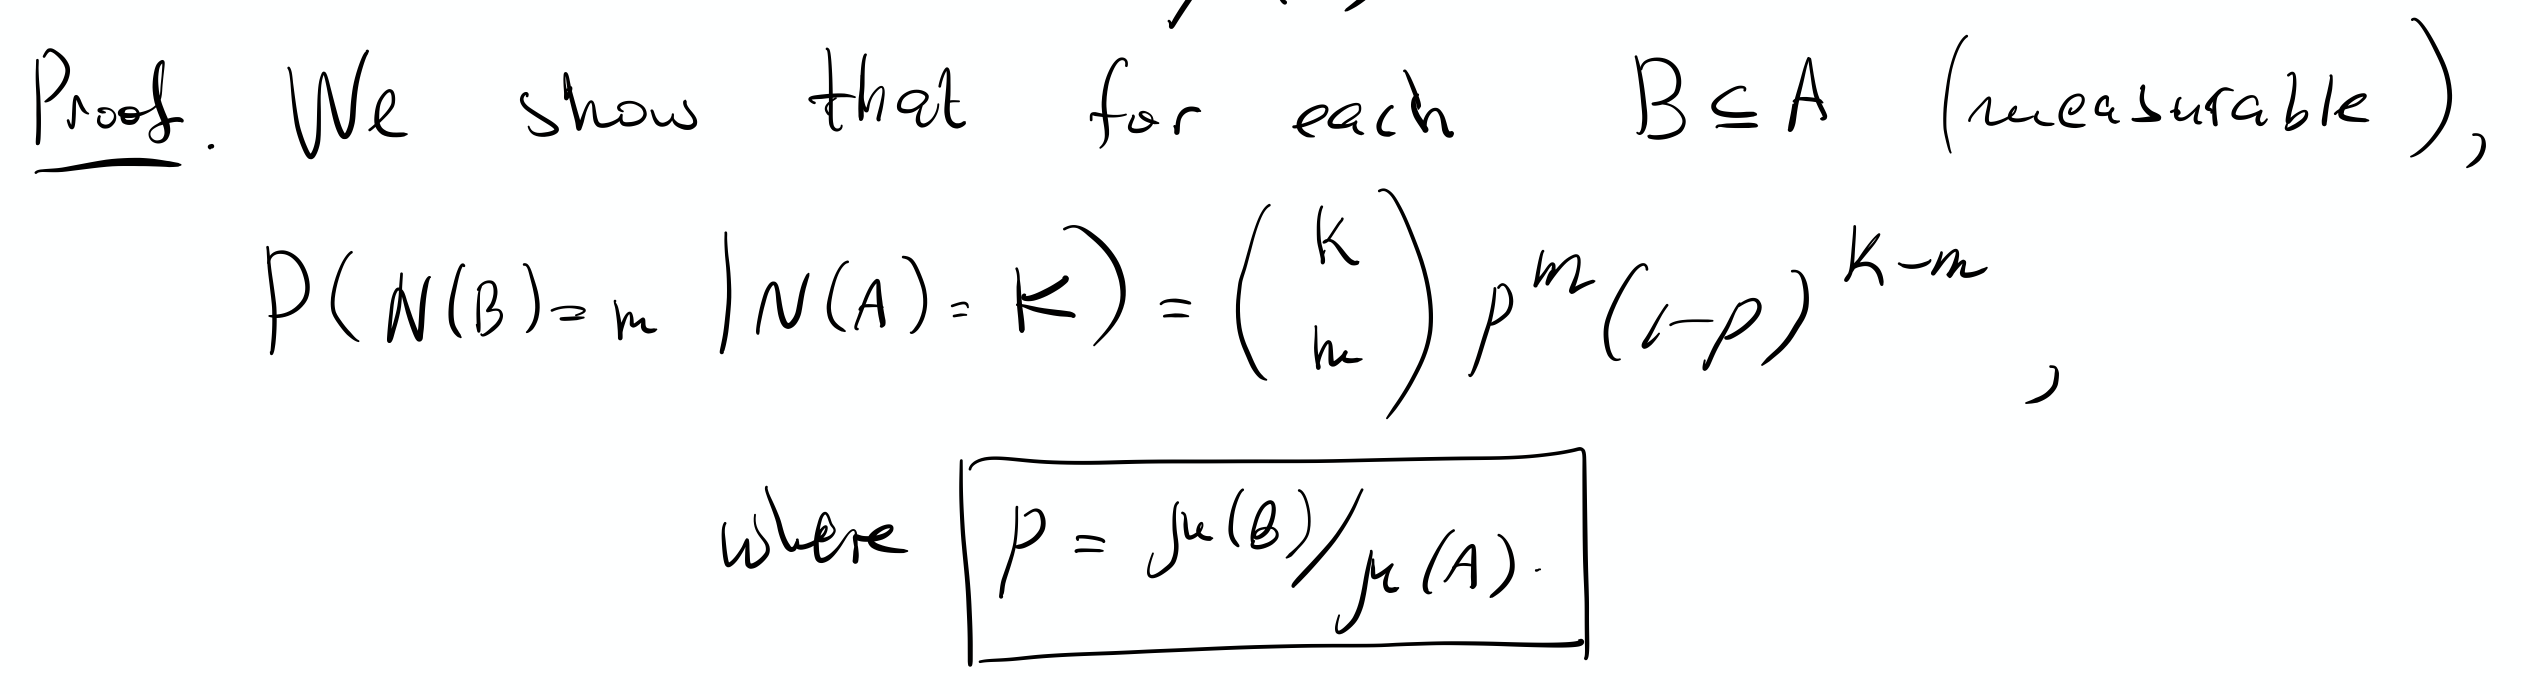 Proof. We show that for each B ⊆ A (measurable),
P(N(B) = m | N(A) = K) = (K m) p^m (1-p)^{K-m},
where p = μ(B)/μ(A).